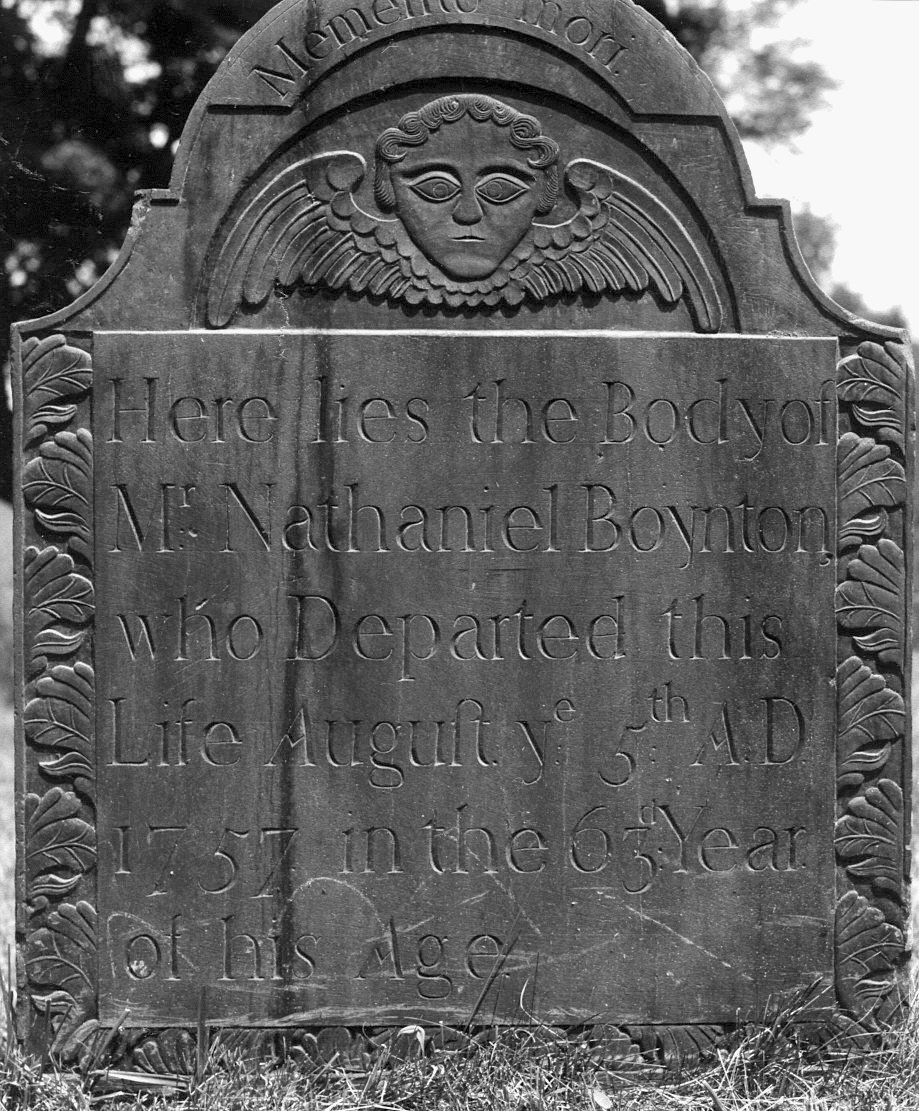 Memento mori.
Here lies the Body of
Mr. Nathaniel Boynton,
who Departed this
Life Auguſt. yᵉ. 5ᵗʰ. A.D.
1757 in the 63ᵈ. Year.
of his Age.